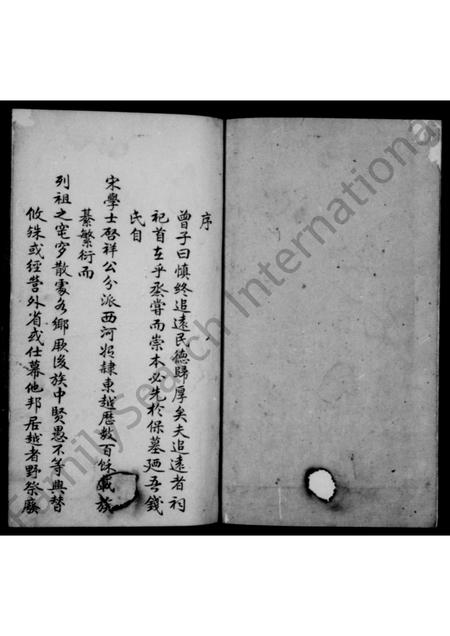 序
曾子曰慎終追遠民德歸厚矣夫追遠者祠
祀首在乎烝嘗而崇本必先於保墓廼吾錢
氏自
宋學士啓祥公分派西河始隸東越歷數百餘載族
綦繁衍而
列祖之窀穸散處各鄉厥後族中賢愚不等興替
攸殊或經營外省或仕幕他邦居越者野祭廢
FamilySearch International